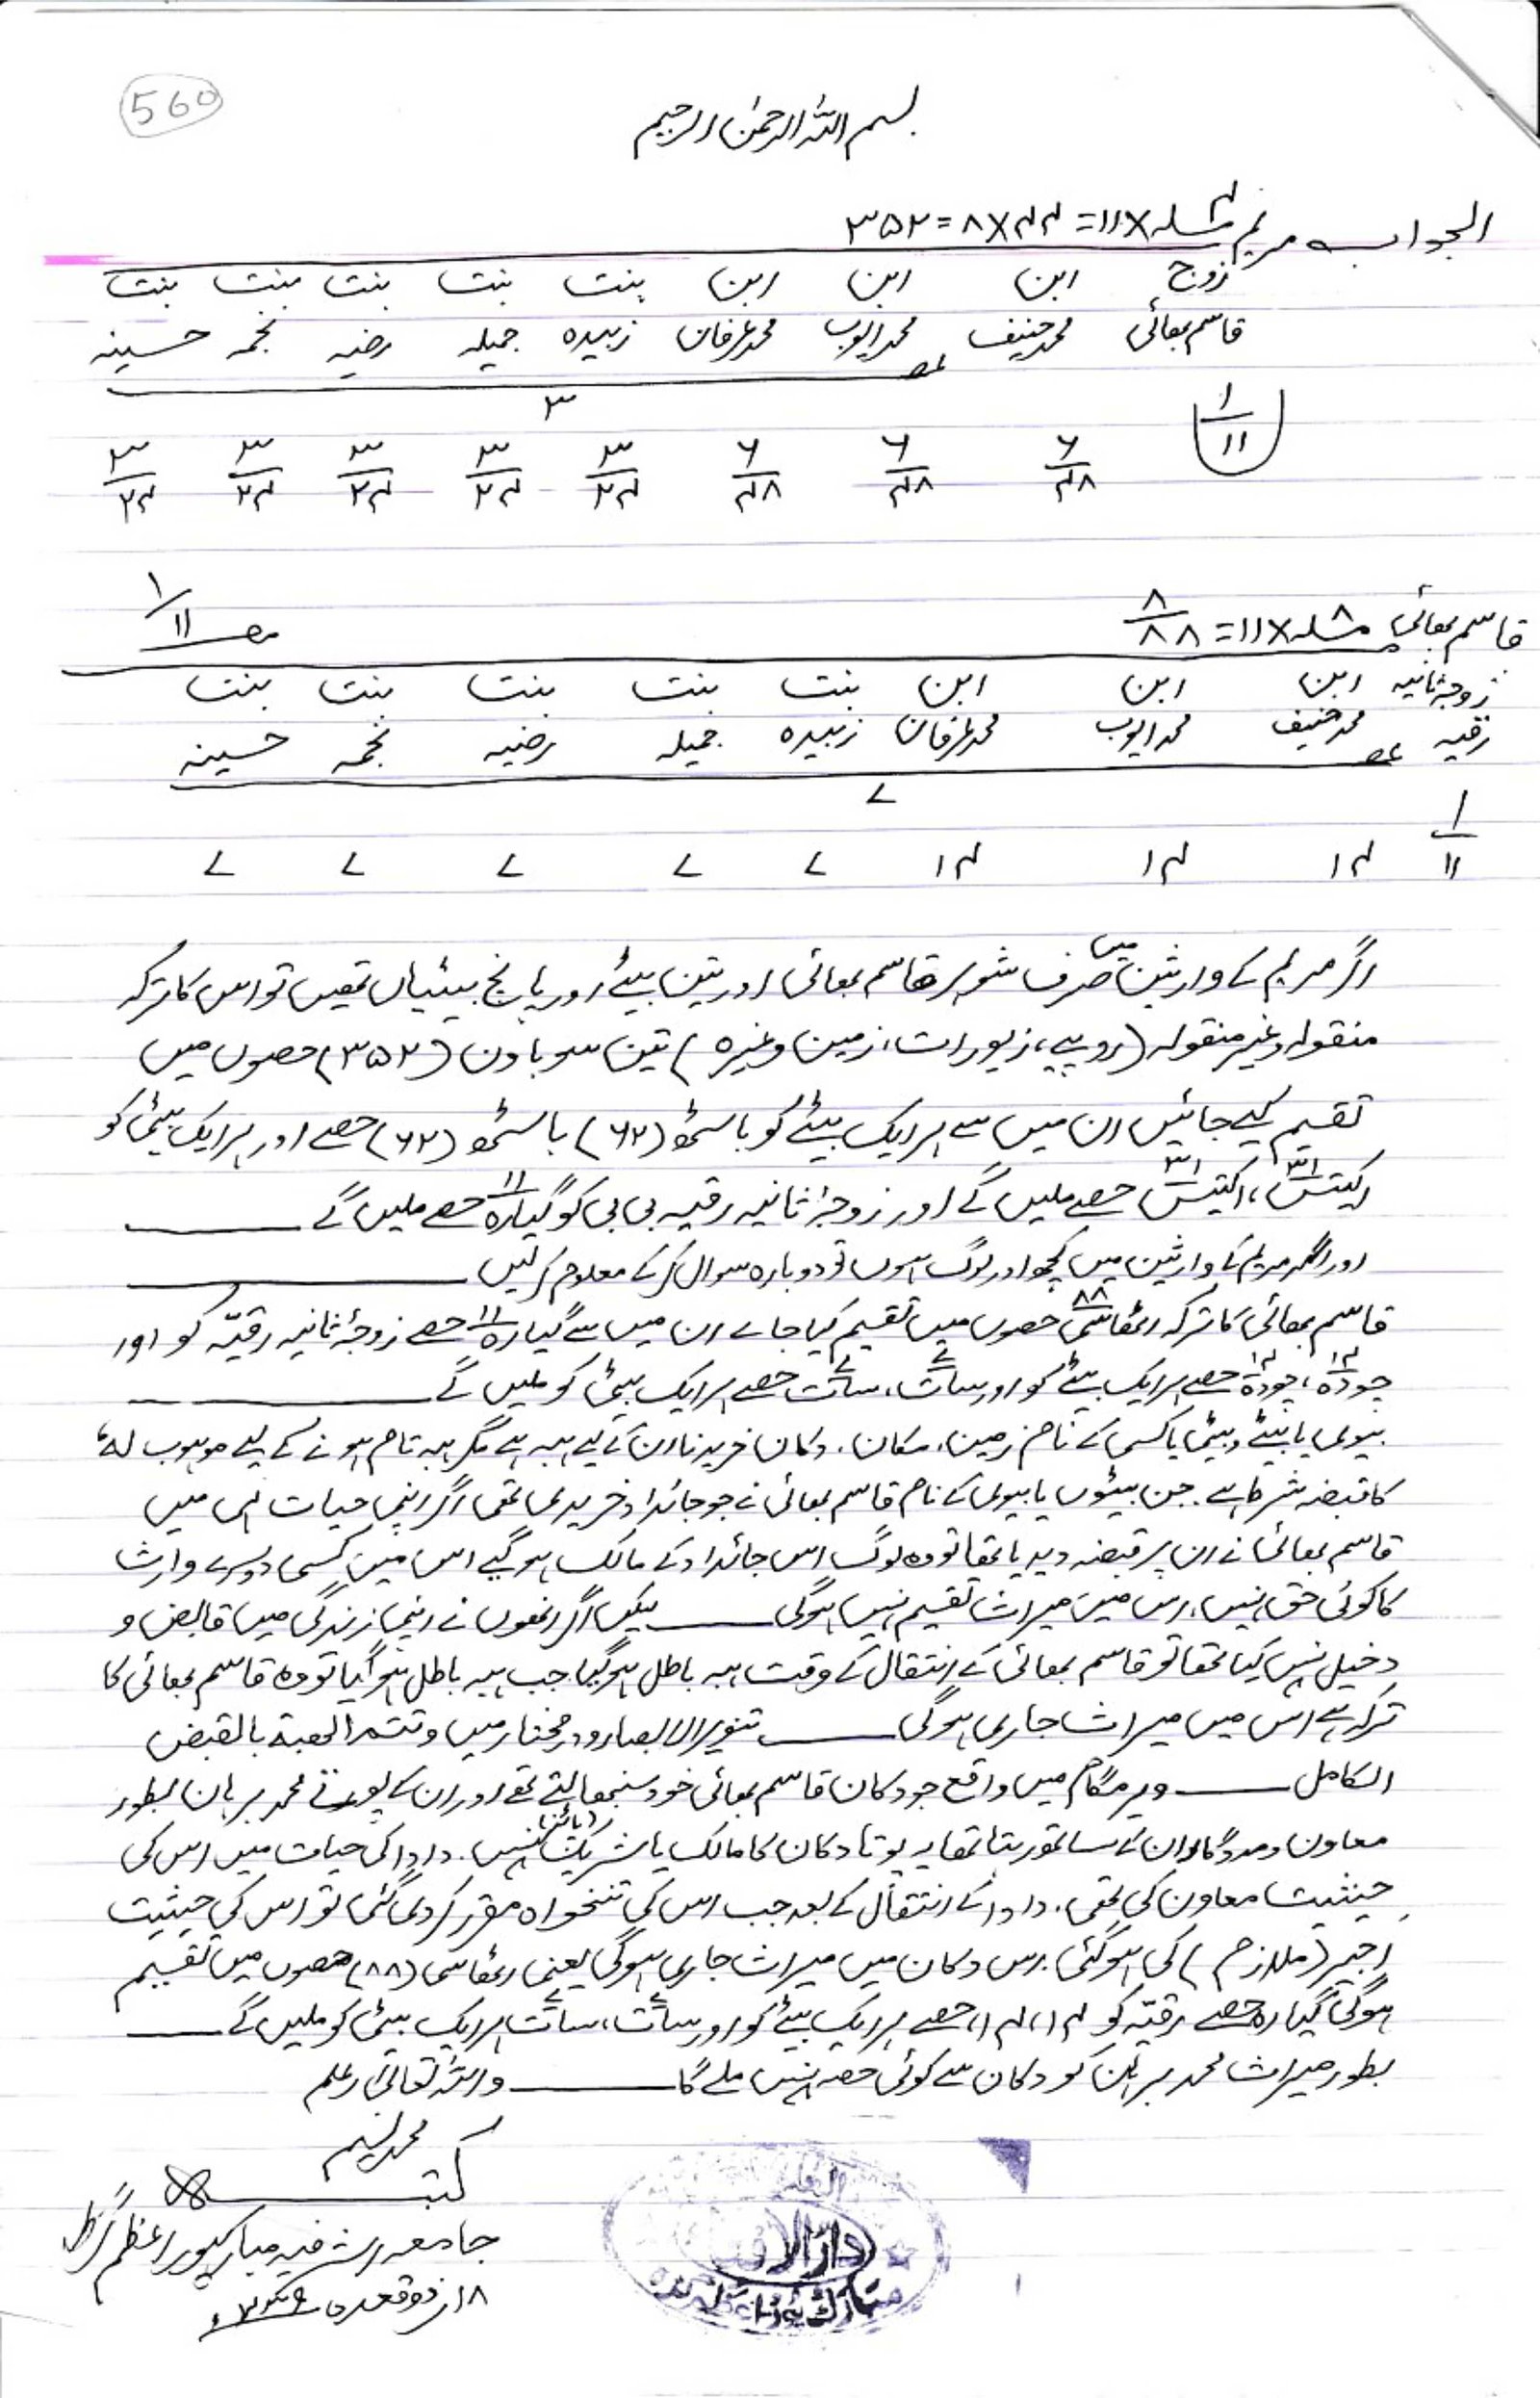 560
بسم اللہ الرحمٰن الرحیم
الجواب مریم مسئلہ ۴ ۱۱x= ۴۴x۸= ۳۵۲
زوج ابن ابن ابن بنت بنت بنت بنت بنت
قاسم بھائی محمد حنیف محمد ایوب محمد عرفان زبیدہ جمیلہ رضیہ نجمہ حسینہ
عصـ
۳
۱/۱۱ ۶/۴۸ ۶/۴۸ ۶/۴۸ ۳/۲۴ ۳/۲۴ ۳/۲۴ ۳/۲۴ ۳/۲۴
قاسم بھائی مسئلہ ۸ ۱۱x= ۸/۸۸ مصـ ۱/۱۱
زوجہ ثانیہ ابن ابن ابن بنت بنت بنت بنت بنت
رقیہ محمد حنیف محمد ایوب محمد عرفان زبیدہ جمیلہ رضیہ نجمہ حسینہ
عصـ
۷
۱/۱۱ ۱۴ ۱۴ ۱۴ ۷ ۷ ۷ ۷ ۷
اگر مریم کے وارثین میں صرف شوہر قاسم بھائی اور تین بیٹے اور پانچ بیٹیاں تھیں تو اس کا ترکہ
منقولہ وغیر منقولہ (روپیے، زیورات، زمین وغیرہ) تین سو باون (۳۵۲) حصوں میں
تقسیم کیے جائیں ان میں سے ہر ایک بیٹے کو باسٹھ (۶۲) باسٹھ (۶۲) حصے اور ہر ایک بیٹی کو
اکیتس ۳۱، اکیتس ۳۱ حصے ملیں گے اور زوجۂ ثانیہ رقیہ بی بی کو گیارہ ۱۱ حصے ملیں گے
اور اگر مریم کے وارثین میں کچھ اور لوگ ہوں تو دوبارہ سوال کرکے معلوم کرلیں
قاسم بھائی کا ترکہ اٹھاسی ۸۸ حصوں میں تقسیم کیا جائے ان میں سے گیارہ ۱۱ حصے زوجۂ ثانیہ رقیّہ کو اور
چودہ ۱۴، چودہ ۱۴ حصے ہر ایک بیٹے کو اور سات ۷، سات ۷ حصے ہر ایک بیٹی کو ملیں گے
بیوی یا بیٹے و بیٹی یا کسی کے نام زمین، مکان، دکان خریدنا ان کے لیے ہبہ ہے مگر ہبہ تام ہونے کے لیے موہوب لہٗ
کا قبضہ شرط ہے۔ جن بیٹوں یا بیوی کے نام قاسم بھائی نے جو جائداد خریدی تھی اگر اپنی حیات ہی میں
قاسم بھائی نے ان پر قبضہ دیدیا تھا تو وہ لوگ اس جائداد کے مالک ہو گیے اس میں کسی دوسرے وارث
کا کوئی حق نہیں، اس میں میراث تقسیم نہیں ہوگی لیکن اگر انھوں نے اپنی زندگی میں قابض و
دخیل نہیں کیا تھا تو قاسم بھائی کے انتقال کے وقت ہبہ باطل ہوگیا۔ جب ہبہ باطل ہوگیا تو وہ قاسم بھائی کا
ترکہ ہے اس میں میراث جاری ہوگی تنویر الابصار و درمختار میں وتتم الھبۃ بالقبض
الکامل ویرمگام میں واقع جو دکان قاسم بھائی خود سنبھالتے تھے اور ان کے پوتے محمد برہان بطور
معاون ومددگار ان کے ساتھ رہتا تھا یہ پوتا دکان کا مالک یا شریک (پاٹنر) نہیں۔ دادا کی حیات میں اس کی
حیثیت معاون کی تھی، دادا کے انتقال کے بعد جب اس کی تنخواہ مقرر کردی گئی تو اس کی حیثیت
اجیر (ملازم) کی ہوگئی، اس دکان میں میراث جاری ہوگی یعنی اٹھاسی (۸۸) حصوں میں تقسیم
ہوگی گیارہ حصے رقیّہ کو ۱۴، ۱۴ حصے ہر ایک بیٹے کو اور سات ۷، سات ۷ ہر ایک بیٹی کو ملیں گے
بطور میراث محمد برہان کو دکان سے کوئی حصہ نہیں ملے گا واللہ تعالیٰ اعلم
محمد نسیم
کتبـــــہ
جامعہ اشرفیہ مبارکپور اعظم گڑھ
۱۸ ذوقعدہ
دار الافتاء